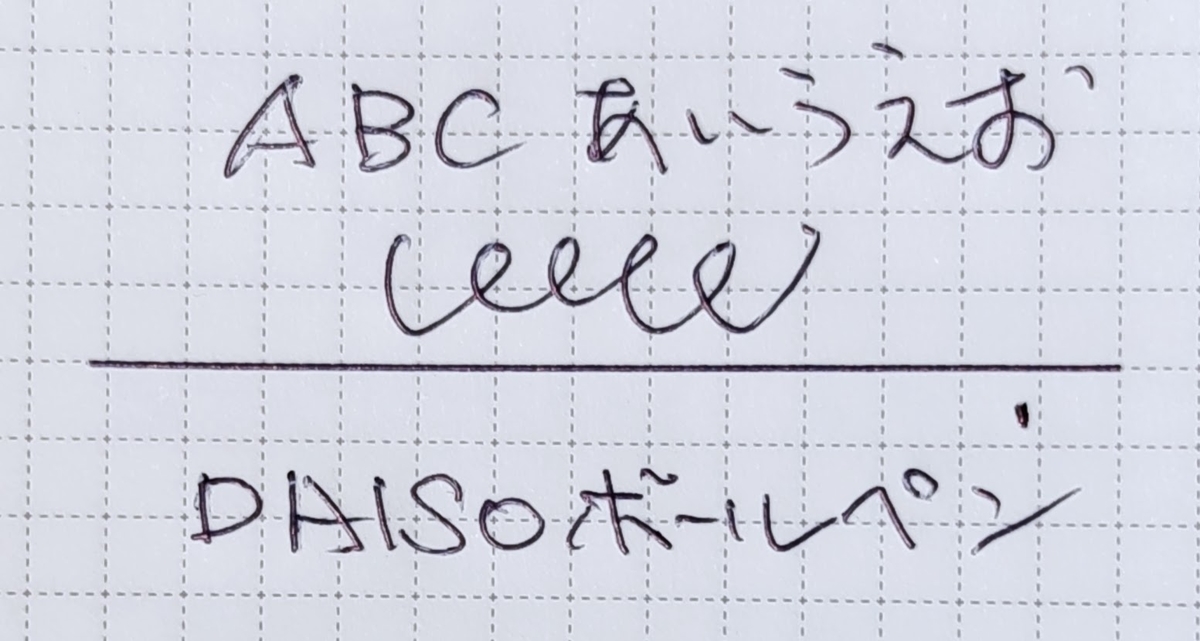 ABC あいうえお
DAISOボールペン